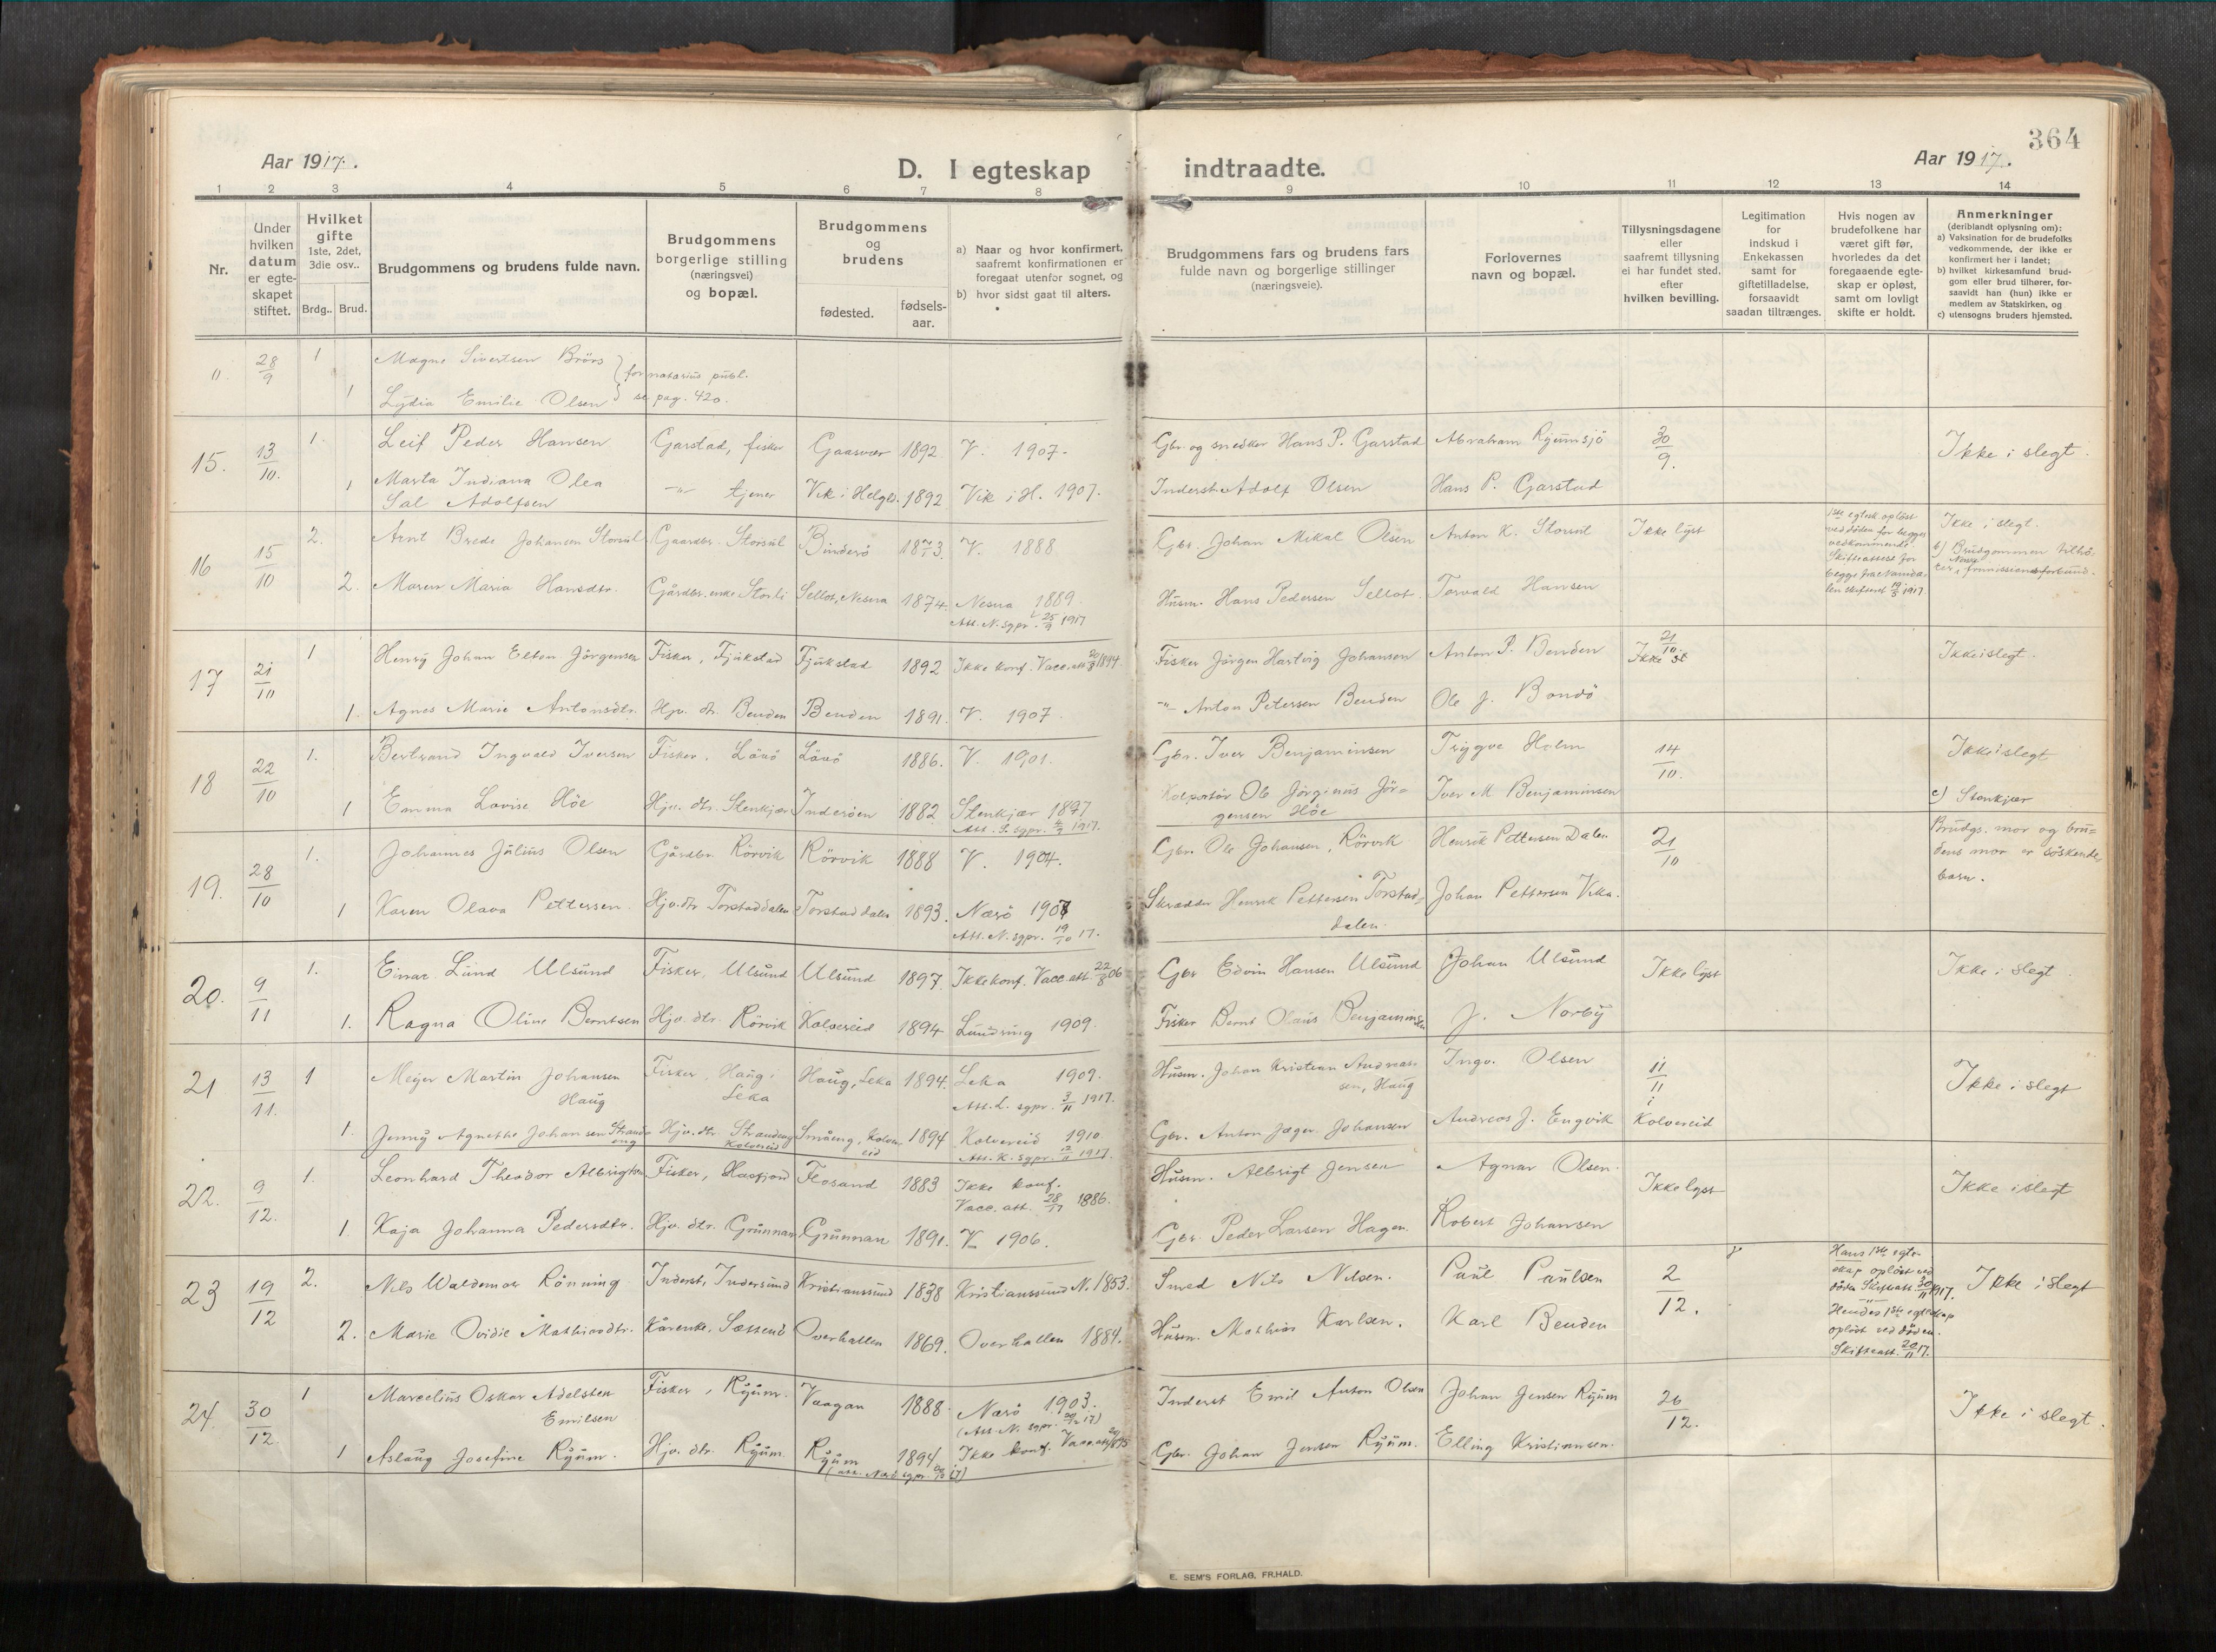 364
Aar 1917.
D. I egteskap indtraadte.
Aar 1917.
1 2 3 4 5 6 7 8 9 10 11 12 13 14
Nr.
Under hvilken datum er egte-skapet stiftet.
Hvilket gifte 1ste, 2det, 3die osv..
Brdg.. Brud.
Brudgommens og brudens fulde navn.
Brudgommens borgerlige stilling (næringsvei) og bopæl.
Brudgommens og brudens
fødested. fødsels-aar.
a) Naar og hvor konfirmert, saafremt konfirmationen er foregaat utenfor sognet, og
b) hvor sidst gaat til alters.
Brudgommens fars og brudens fars fulde navn og borgerlige stillinger (næringsveie).
Forlovernes navn og bopæl.
Tillysningsdagene eller saafremt tillysning ei har fundet sted. efter hvilken bevilling.
Legitimation for indskud i Enkekassen samt for giftetilladelse, forsaavidt saadan tiltrænges.
Hvis nogen av brudefolkene har været gift før, hvorledes da det foregaaende egte-skap er opløst, samt om lovligt skifte er holdt.
Anmerkninger
(deriblandt oplysning om):
a) Vaksination for de brudefolks vedkommende, der ikke er konfirmert her i landet;
b) hvilket kirkesamfund brud-gom eller brud tilhører, for-saavidt han (hun) ikke er medlem av Statskirken, og
c) utensogns bruders hjemsted.
" 28/9 1 Magne Sivertsen Brörs } for notarius publ.
1 Lydia Emilie Olsen } se pag. 420.
15. 13/10. 1. Leif Peder Hansen Garstad, fisker Gaasvær 1892 V. 1907. Gbr. og snedker Hans P. Garstad Abraham Ryumsjö 30/9. Ikke i slegt.
1 Marta Indiana Olea Sal Adolfsen -"- tjener Vik i Helgel. 1892 Vik i H. 1907. Inderst. Adolf Olsen Hans P. Garstad
16 15/10 2. Arnt Brede Johansen Storsul Gaardbr. Storsul Binderö 1873. V. 1888 Gbr. Johan Mikal Olsen Anton K. Storsul Ikke lyst
1ste egtesk. opløst ved døden for begges vedkommende. Skifteattest for begge fra Namda-len skifteret 19/5 1917.
Ikke i slegt.
b) Brudgommen tilhö-rer Norsk
2. Maren Maria Hansdtr. Gårdbr. enke Storli Sellot, Nesna 1874. Nesna 1889. Att. N. sgpr. 25/9 1917 Husm. Hans Pedersen Sellot. Torvald Hansen
17 21/10 1 Henry Johan Elton Jörgensen Fisker, Fjukstad Fjukstad 1892 Ikke konf. Vacc. att. 1894 Fisker Jörgen Hartvig Johansen Anton P. Benden 21/10 Ikke Ikke i slegt.
1. Agnes Marie Antonsdtr. Hjv. dtr. Benden Benden 1891. V. 1907. -"- Anton Petersen Benden Ole J. Bondö
18 22/10 1. Bertrand Ingvald Iversen Fisker. Lövö Lövö 1886. V. 1901. Gbr. Iver Benjaminsen Trygve Holm 14/10. Ikke i slegt
1 Emma Lovise Höe Hjv. dtr. Stenkjær Inderöen 1882 Stenkjær 1897 Att. S. sgpr. 4/9 1917. Kolportör Ole Jörginus Jör=gensen Höe Iver M Benjaminsen c) Stenkjær
19. 28/10 1. Johannes Julius Olsen Gårdbr. Rörvik Rörvik 1888 V. 1904. Gbr. Ole Johansen, Rörvik Henrik Pettersen Dalen 21/10 Brudgs. mor og bru=dens mor er söskende-barn.
1 Karen Olava Pettersen Hjv. dtr Torstaddalen Torstaddalen 1893. Nærö 1908 Att. N. sgpr. 19/10 17. Skrædder Henrik Pettersen Torstad=dalen. Johan Pettersen Vika.
20. 9/11 1. Einar Lund Ulsund Fisker, Ulsund Ulsund 1897. Ikke konf. Vacc. att 22/8 06 Gbr Edvin Hansen Ulsund Johan Ulsund Ikke lyst Ikke i slegt.
1. Ragna Oline Berntsen Hjv. dtr. Rörvik Kolvereid 1894 Lundring 1909. Fisker Bernt Olaus Benjaminsen J. Norby
21 13/11. 1 Meyer Martin Johansen Haug Fisker, Haug, Leka Haug, Leka 1894. Leka 1909. Att. L. sgpr. 3/11 1917. Husm. Johan Kristian Andreas-sen, Haug Ingv. Olsen 11/11 i Kolvereid Ikke i slegt
1. Jenny Agnethe Johansen Strand-eng Hjv. dtr. Strandeng Kolvereid Småeng, Kolver-eid 1894 Kolvereid 1910 Att. K. sgpr. 1917. Gbr. Anton Jæger Johansen Andreas J. Engvik
22. 9/12. 1. Leonhard Theodor Albrigtsen Fisker, Hasfjord Flosand 1883 Ikke konf. Vacc. att. 1886. Husm. Albrigt Jensen Agnar Olsen. Ikke lyst Ikke i slegt
1. Kaja Johanna Pedersdtr. Hjv. dtr. Grunnan Grunnan 1891. V 1906. Gbr. Peder Larsen Hagen. Robert Johansen
23 19/12 2. Nils Waldemar Rönning Inderst, Indersund Kristianssund 1838 Kristianssund N. 1853. Smed Nils Nilsen. Paul Paulsen 2/12.
Hans 1ste egte-skap oplöst ved döden Skifteatt. 30/11 1917.
Hendes 1ste egteskap oplöst ved döden. Skifteatt. 20/11 17.
Ikke i slegt
2. Marie Ovidie Mathiasdtr. Kårenke, Sættend Overhallen 1869. Overhallen 1884. Husm. Mathias Karlsen. Karl Benden
24. 30/12 1 Marcelius Oskar Adelsten Emilsen Fisker, Ryum. Vaagan 1888. Nærö 1903. (Att. N. sgpr. 17) Inderst Emil Anton Olsen Johan Jensen Ryum 26/12. Ikke i slegt.
1 Aslaug Josefine Ryum. Hjv. dtr. Ryum. Ryum 1894. Ikke konf. Vacc. att. Gbr. Johan Jensen Ryum. Elling Kristiansen.
E. SEM'S FORLAG, FR.HALD.